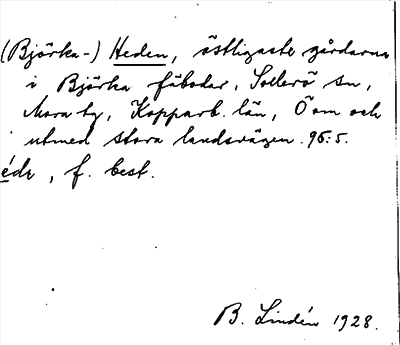 (Björka-) Heden, östligaste gårdarna
i Björka fäbodar, Sollerö sn,
Mora tg, Kopparb. län, Ö om och
utmed stora landsvägen. 96:5.
éde, f. best.
B. Lindén 1928.